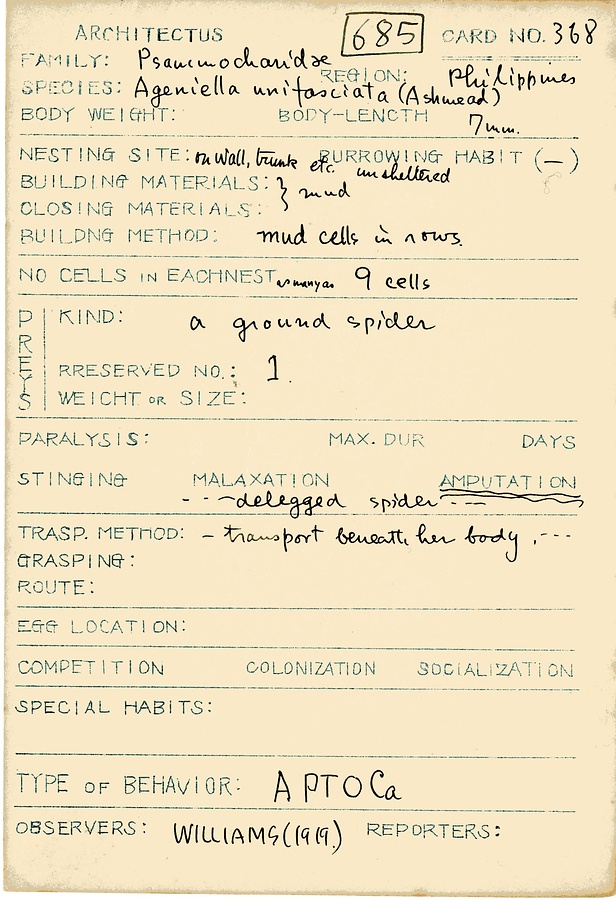 ARCHITECTUS 685 CARD NO. 368
FAMILY: Psammocharidae
REGION: Philippines
SPECIES: Ageniella unifasciata (Ashmead)
BODY WEIGHT: BODY-LENGTH 7mm.
NESTING SITE: on wall, trunk etc. unsheltered BURROWING HABIT (—)
BUILDING MATERIALS: } mud
CLOSING MATERIALS:
BUILDNG METHOD: mud cells in rows.
NO CELLS IN EACHNEST as many as 9 cells
PREYS
KIND: a ground spider
RRESERVED NO.: 1.
WEICHT OR SIZE:
PARALYSIS: MAX. DUR DAYS
STINGING MALAXATION AMPUTATION
---delegged spider---
TRASP. METHOD: – transport beneath her body, ---
GRASPING:
ROUTE:
EGG LOCATION:
COMPETITION COLONIZATION SOCIALIZATION
SPECIAL HABITS:
TYPE OF BEHAVIOR: APTOCa
OBSERVERS: WILLIAMS (1919.) REPORTERS: